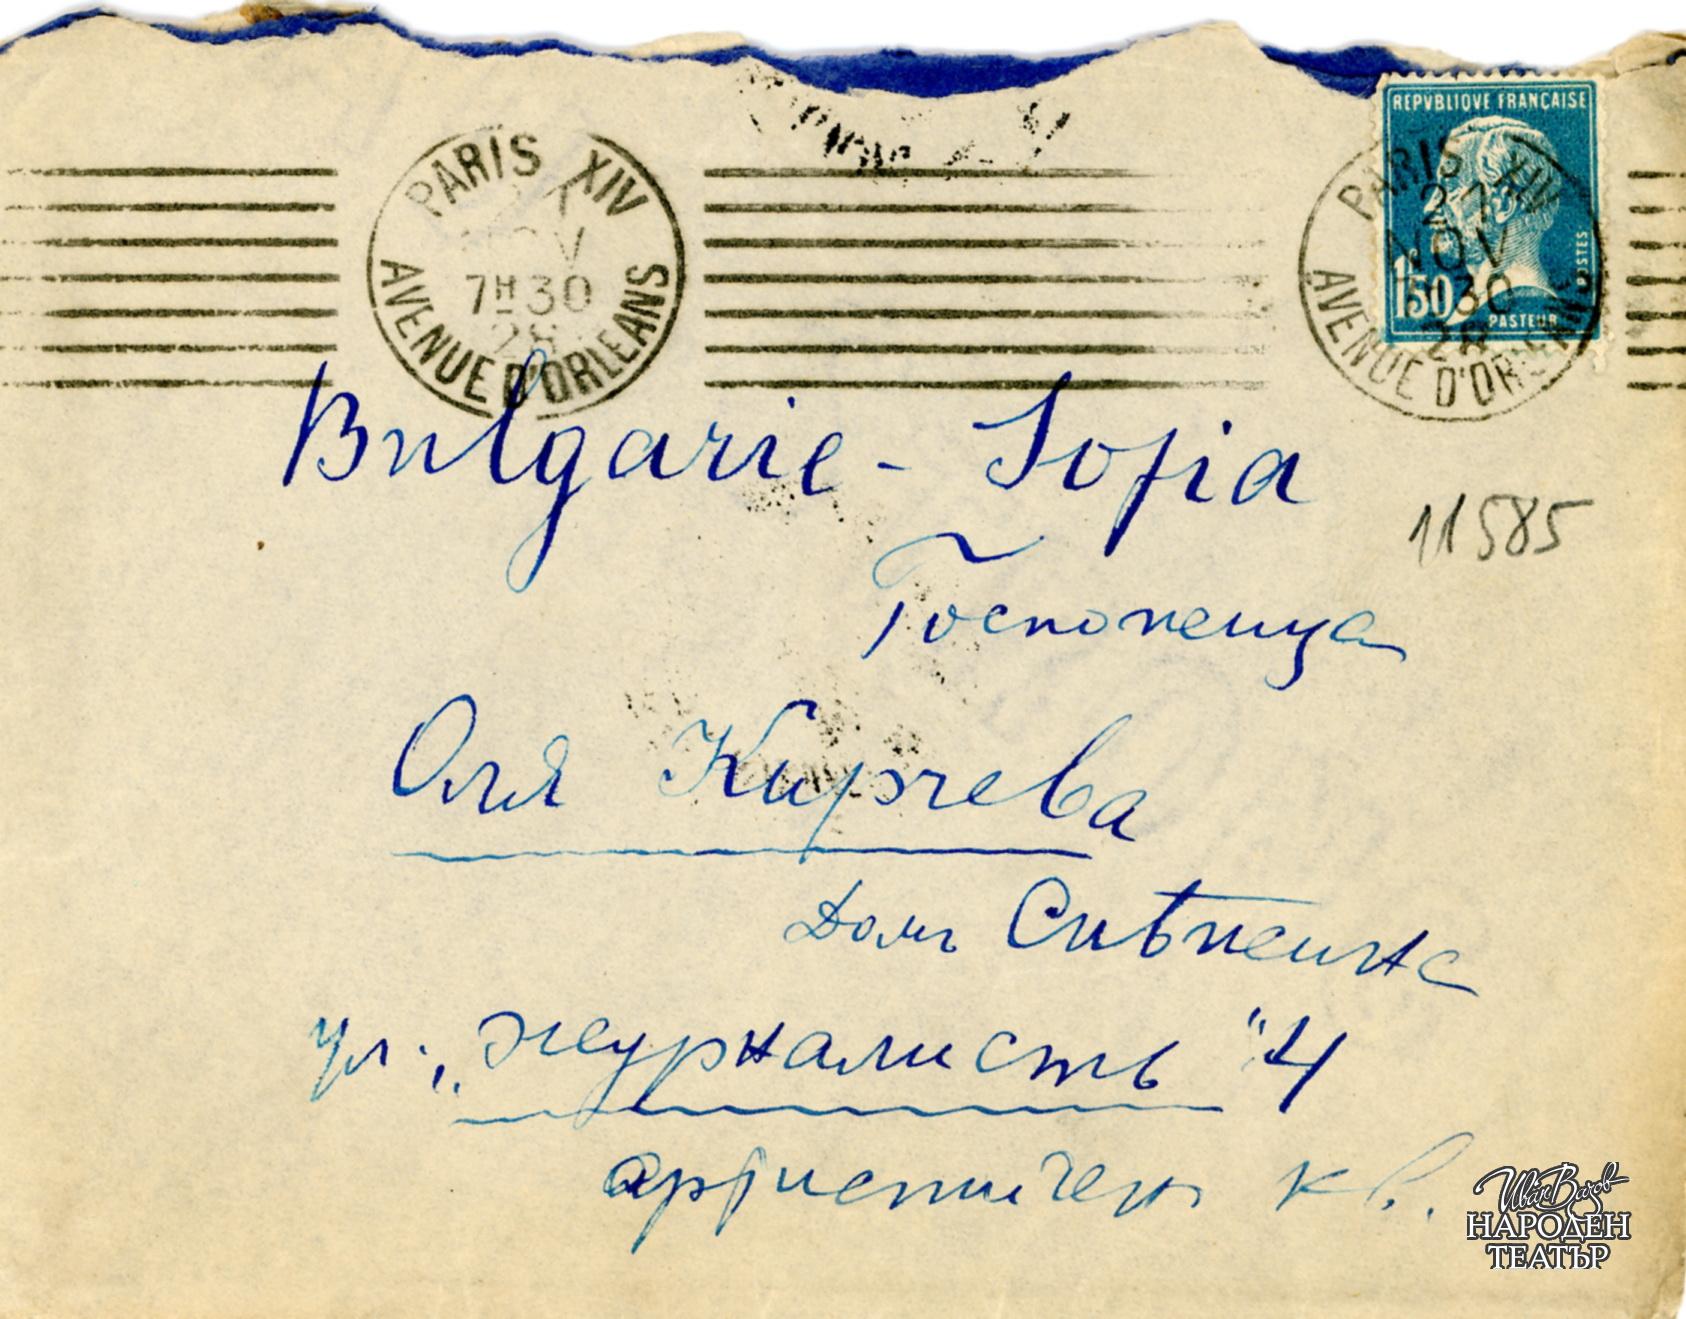 PARIS XIV
7H30
28
AVENUE D'ORLEANS
REPVBLIQVE FRANÇAISE
POSTES
1F50
PASTEUR
PARIS XIV
27
NOV
7H30
28
AVENUE D'ORLEANS
Bulgarie - Sofia
11585
Госпожица
Оля Кирчева
Домъ
ул. „Журналистъ" 4
артистиченъ кв.
Иван Вазов
НАРОДЕН
ТЕАТЪР